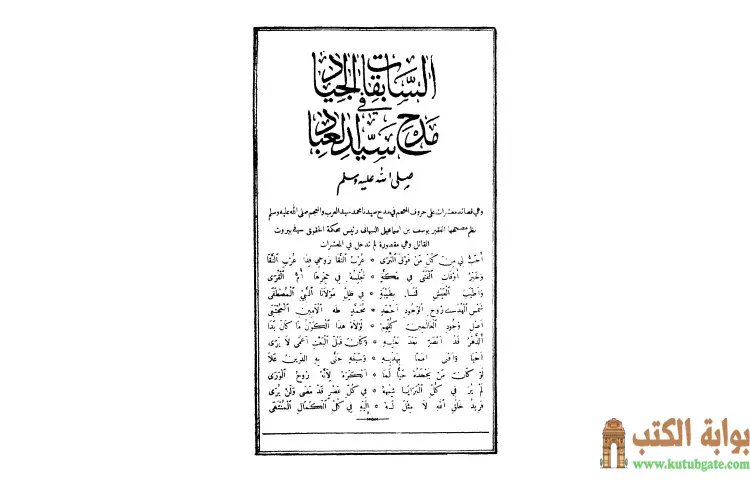 السابقات الجياد
في
مدح سيد العباد
صلى الله عليه وسلم
وهي قصائد معشرات على حروف المعجم في مدح سيدنا محمد سيد العرب والعجم صلى الله عليه وسلم
نظم مصححها الفقير يوسف بن اسماعيل النبهاني رئيس محكمة الحقوق في بيروت
القائل وهي مقصورة لم تدخل في المعشرات
أحب لي من كل من فوق الثرى * عرب النقا روحي فدا عرب النقا
وخير أوقات الفتى في مكة * تجلسه في حجرها أم القرى
وأطيب العيش قسا بطيبة * في ظل مولانا النبي المصطفى
شمس الهدى روح الوجود أحمد * محمد طه الأمين المجتبى
أصل وجود العالمين كلهم * لولاه هذا الكون ما كان بدا
الدهر قد أبصر بعد * وكان قبل البعث أعمى لا يرى
أحيا وأفنى أمما بهديه * وسيفه حتى به الدين علا
لو كان من يجحده حيا لما * أنكره لأنه روح الورى
لم ير في كل البرايا شبهه * في كل عصر قد مضى ولن يرى
فريد خلق الله لا مثل له * إليه في كل الكمال المنتهى
بوابة الكتب
www.kutubgate.com